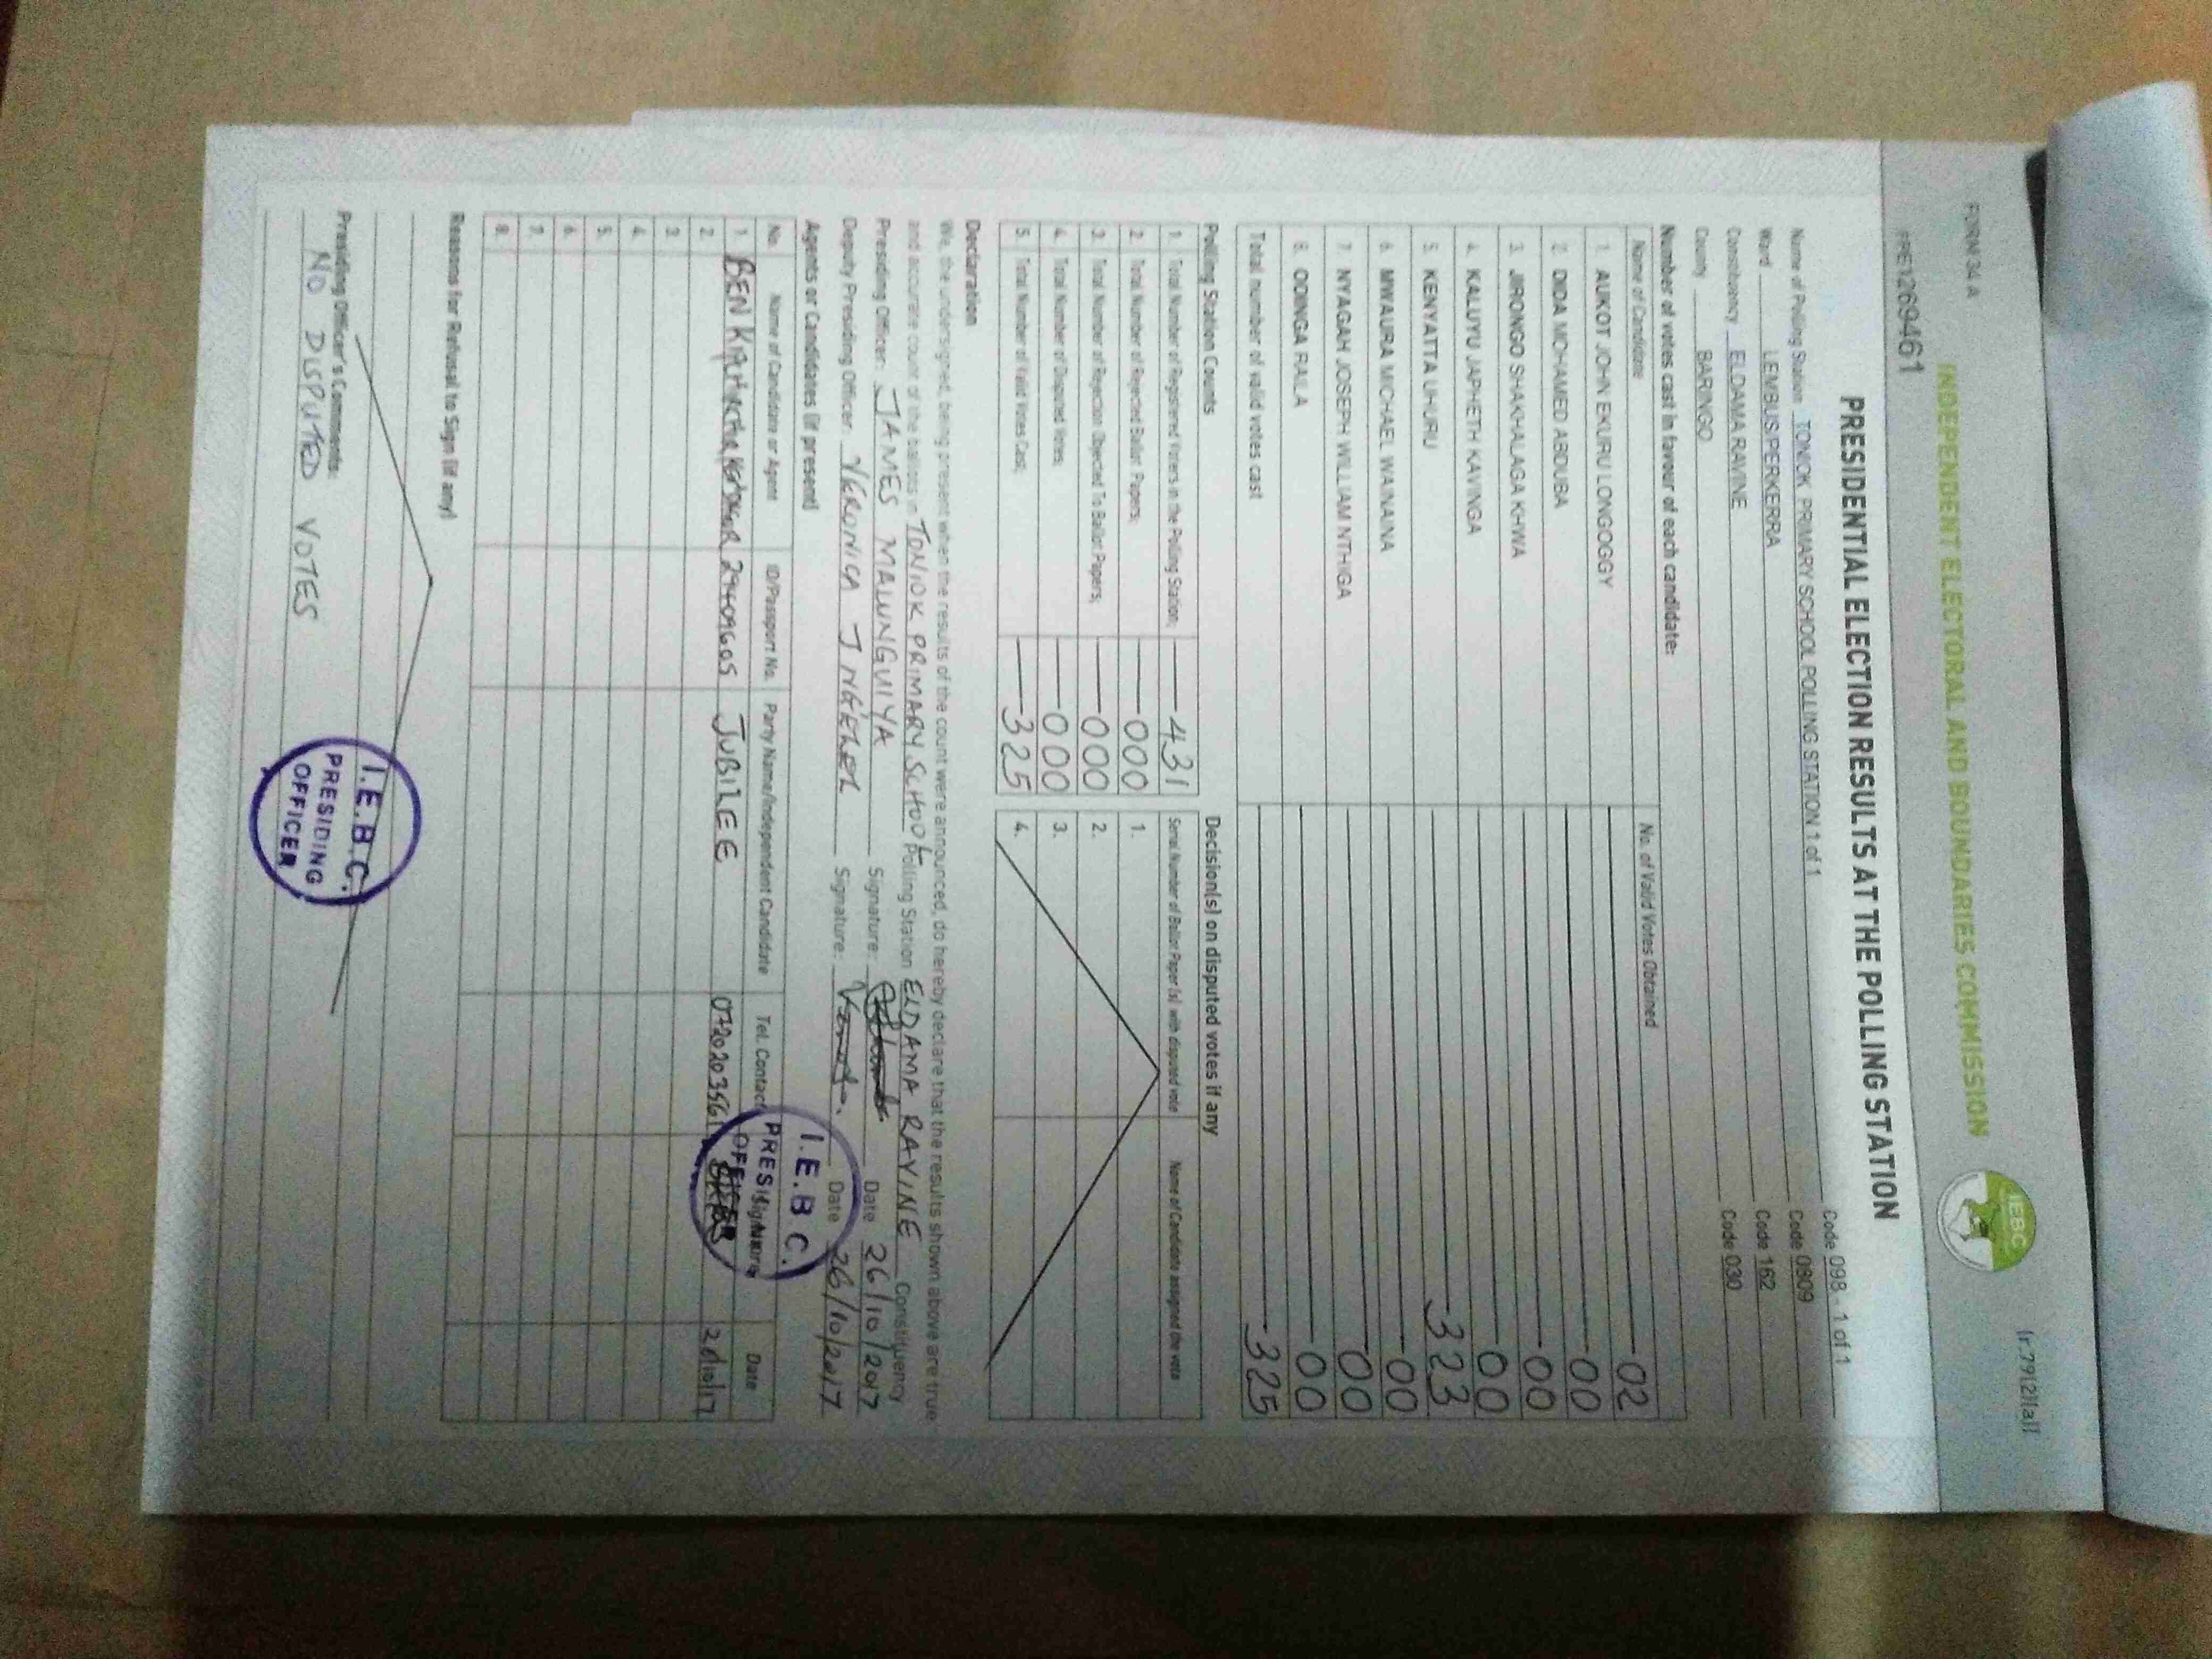 FORM 34 A
(r.79(2)(a))
INDEPENDENT ELECTORAL AND BOUNDARIES COMMISSION
IEBC
PRE1269461
PRESIDENTIAL ELECTION RESULTS AT THE POLLING STATION
Name of Polling Station TONIOK PRIMARY SCHOOL POLLING STATION 1 of 1 Code 098 - 1 of 1
Ward LEMBUS/PERKERRA Code 0809
Constituency ELDAMA RAVINE Code 162
County BARINGO Code 030
Number of votes cast in favour of each candidate:
Name of Candidate No. of Valid Votes Obtained
1. AUKOT JOHN EKURU LONGOGGY 02
2. DIDA MOHAMED ABDUBA 00
3. JIRONGO SHAKHALAGA KHWA 00
4. KALUYU JAPHETH KAVINGA 00
5. KENYATTA UHURU 323
6. MWAURA MICHAEL WAINAINA 00
7. NYAGAH JOSEPH WILLIAM NTHIGA 00
8. ODINGA RAILA 00
Total number of valid votes cast 325
Polling Station Counts
1. Total Number of Registered Voters in the Polling Station; 431
2. Total Number of Rejected Ballot Papers; 000
3. Total Number of Rejection Objected To Ballot Papers; 000
4. Total Number of Disputed Votes; 000
5. Total Number of Valid Votes Cast; 325
Decision(s) on disputed votes if any
Serial Number of Ballot Paper (s) with disputed vote Name of Candidate assigned the vote
1.
2.
3.
4.
Declaration
We, the undersigned, being present when the results of the count were announced, do hereby declare that the results shown above are true
and accurate count of the ballots in TONIOK PRIMARY SCHOOL Polling Station ELDAMA RAVINE Constituency
Presiding Officer: JAMES Signature: Date 26/10/2017
Deputy Presiding Officer: VERONICA J Signature: Date 26/10/2017
Agents or Candidates (if present)
No. Name of Candidate or Agent ID/Passport No. Party Name/Independent Candidate Tel. Contact Signature Date
1. BEN 29409605 JUBILEE 0720203561
2.
3.
4.
5.
6.
7.
8.
I.E.B.C.
PRESIDING
OFFICER
Reasons for Refusal to Sign (if any)
Presiding Officer's Comments:
NO DISPUTED VOTES
I.E.B.C.
PRESIDING
OFFICER